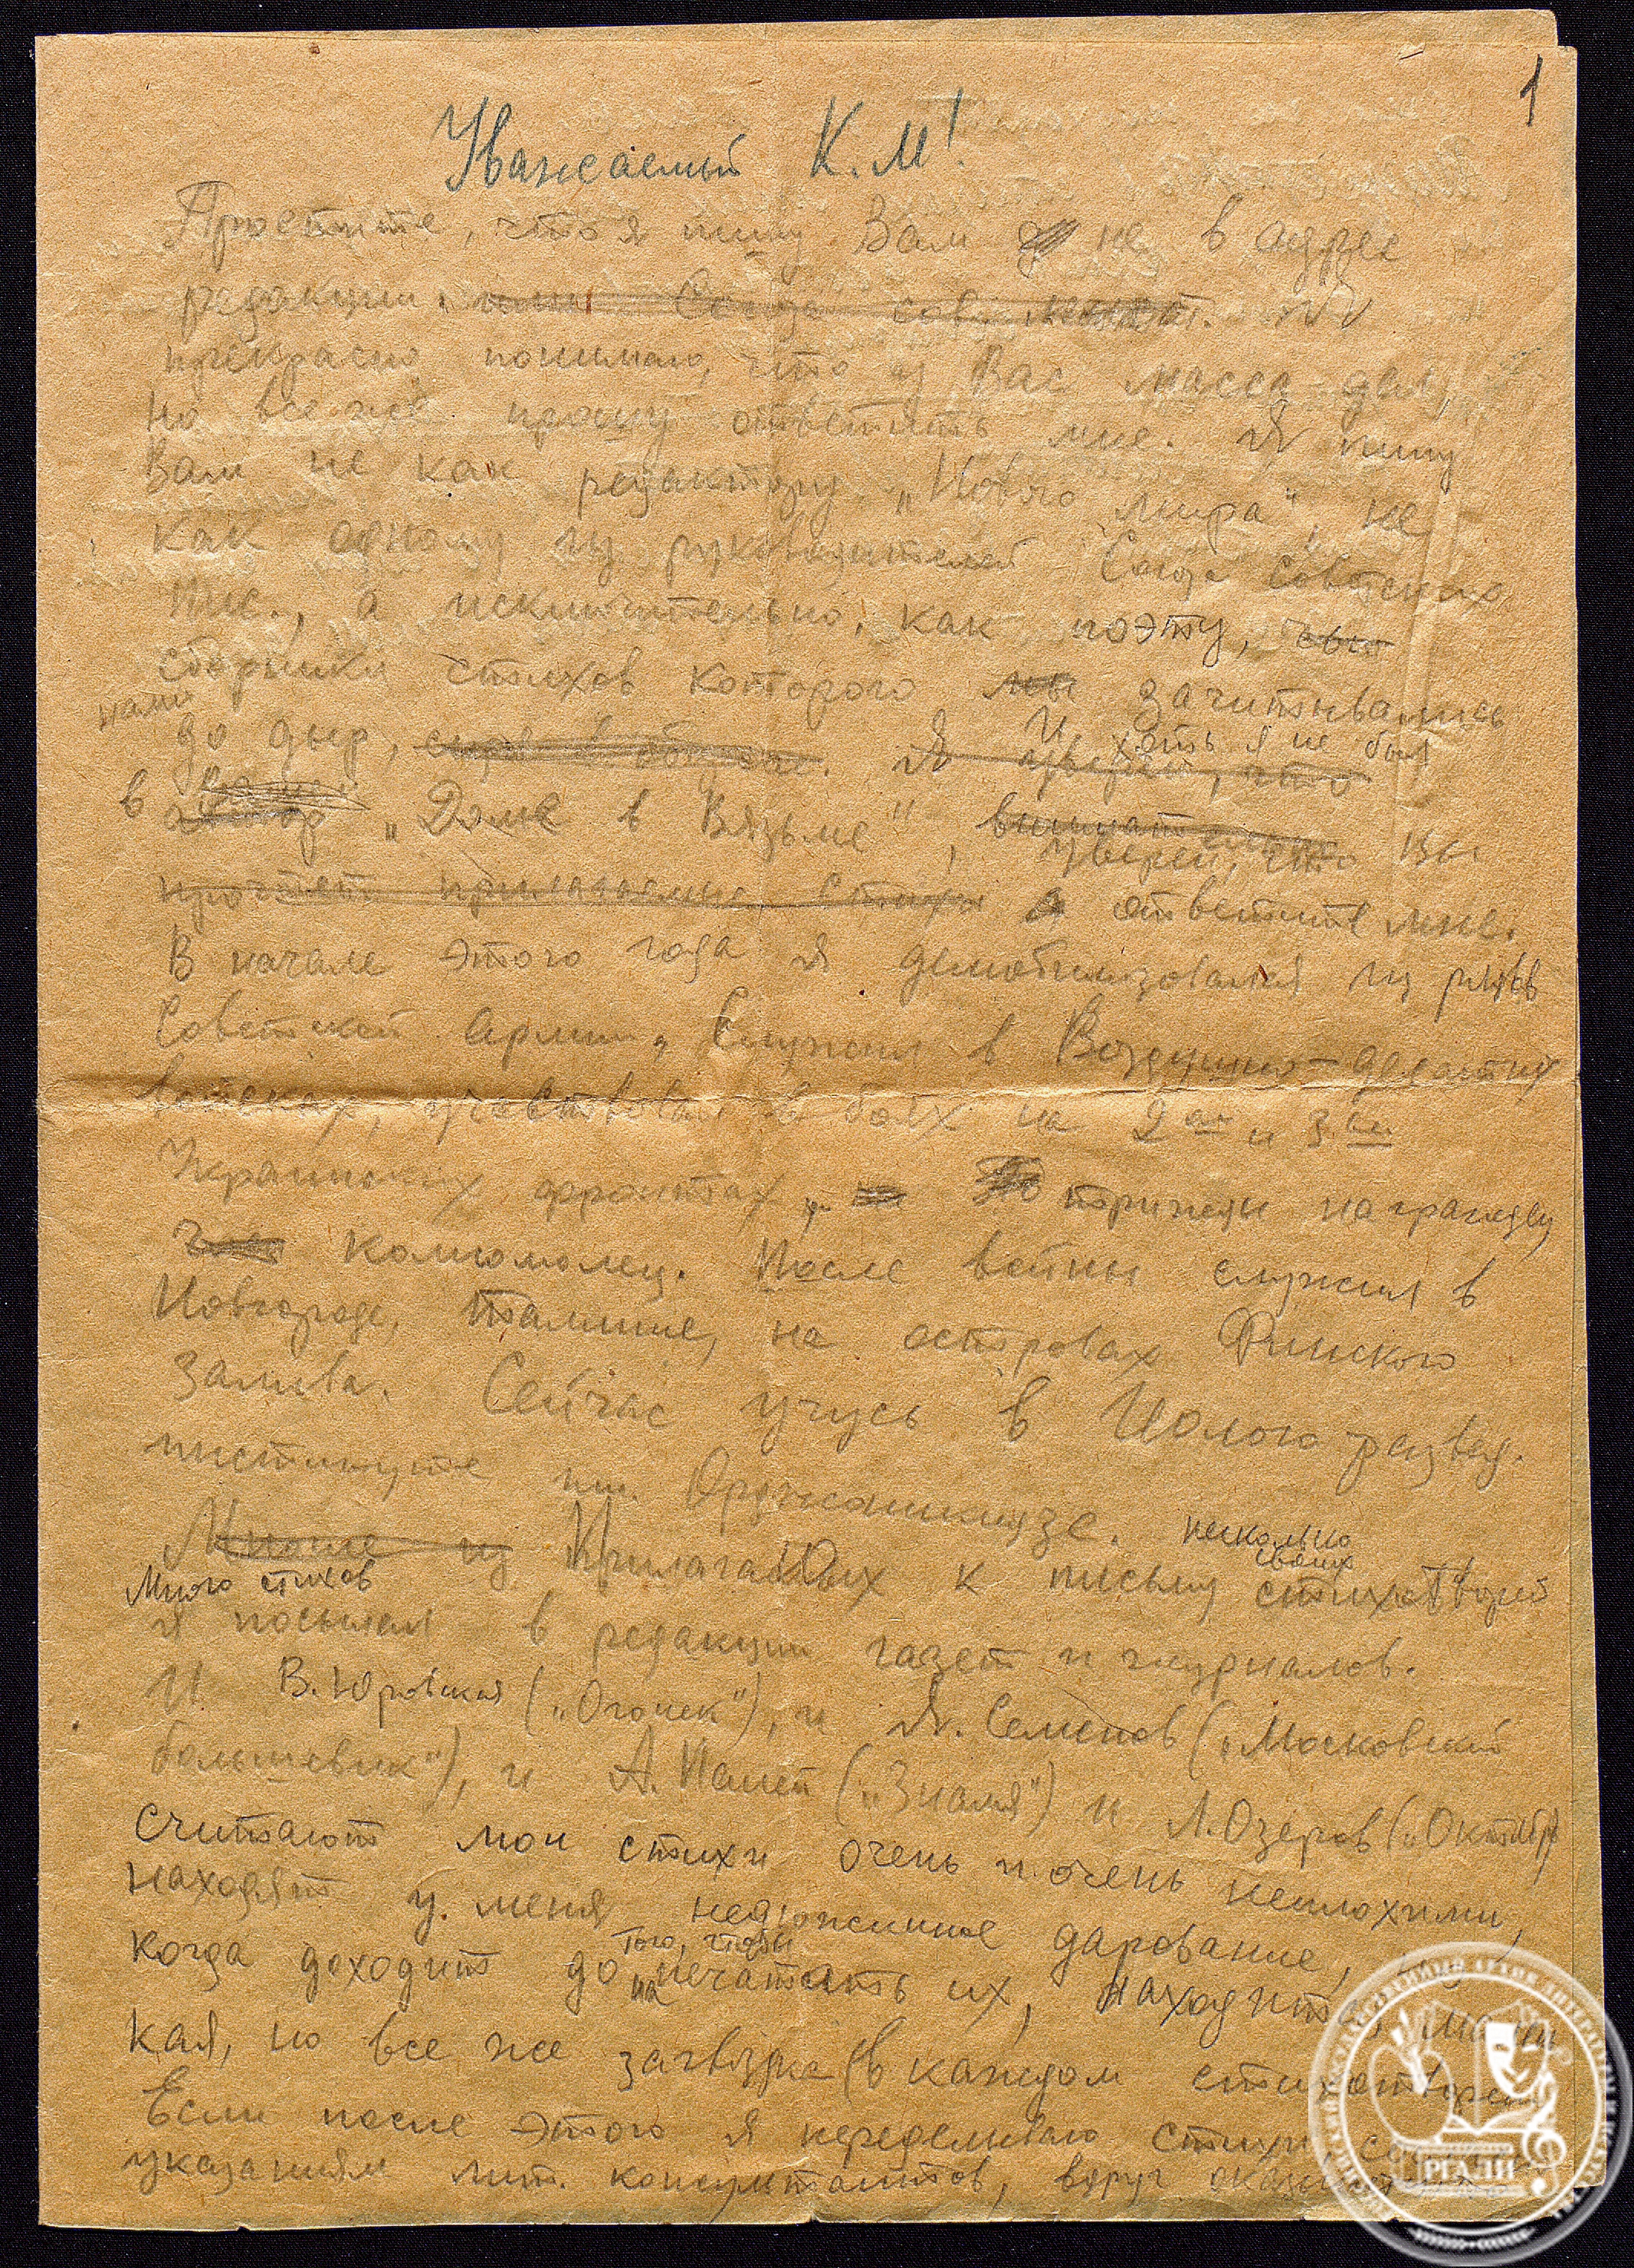 1
Уважаемый К.М!
Простите, что я пишу Вам не в адрес
редакции, или Союза сов. писат. Я
прекрасно понимаю, что у Вас масса дел,
но все же прошу ответить мне. Я пишу
Вам не как редактору „Нового мира", не
как одному из руководителей Союза советских
пис., а исключительно, как поэту,
сборники стихов которого мы зачитывались
нами
до дыр, Я уверен, что
И хоть я не был
в автор „Доме в Вязьме", внимательно
уверен, что Вы
прочтет прилагаемые стихи и ответите мне.
В начале этого года я демобилизовался из рядов
Советской Армии. Служил в Воздушно-десантных
войсках, участвовал в боях на 2ом и 3ем
Украинских фронтах, трижды награжден,
комсомолец. После войны служил в
Новгороде, Талине, на островах Финского
Залива. Сейчас учусь в Геолого развед.
институте им. Орджоникидзе.
несколько
своих
Многие из Прилагаю к письму стихотворен
Много стихов
я посылал в редакции газет и журналов.
И В. Юровская („Огонек"), и Я. Семенов („Московский
большевик"), и А. („Знамя") и Л. Озеров („Октябрь
считают мои стихи очень и очень неплохими,
находят у меня недюжинное дарование,
того, чтобы
когда доходит до напечатать их, находит
кая, но все же загвоздка (в каждом стихотворен
Если после этого я переделываю стихи
указаниям лит. консультантов, вдруг оказывает
РГАЛИ